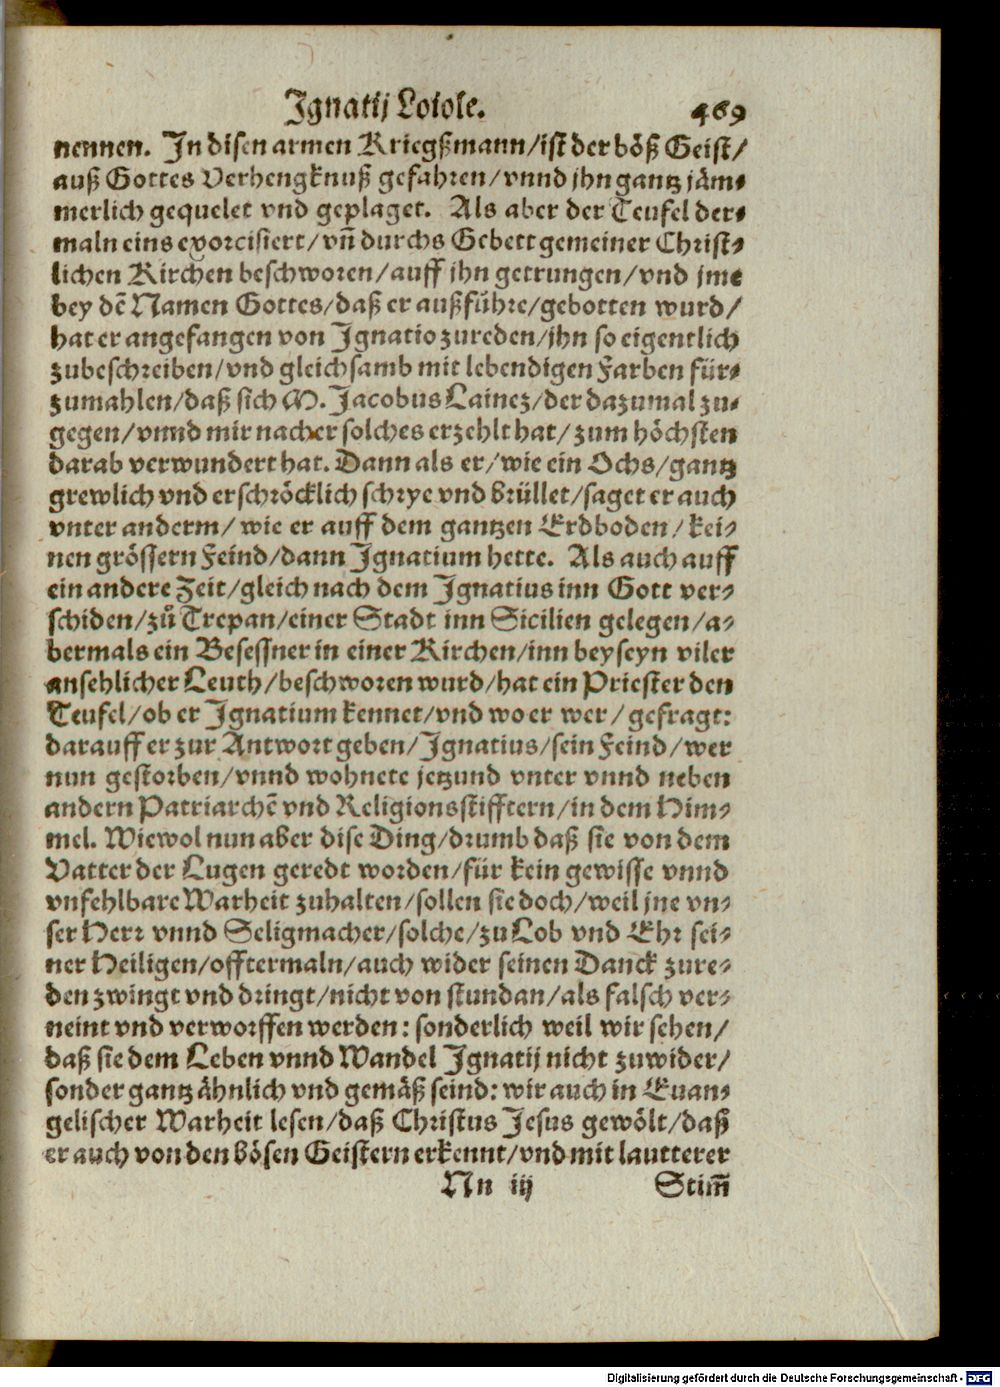 Ignatij Loiole. 469
nennen. In disen armen Kriegßmann/ist der böß Geist/
auß Gottes Verhengknuß gefahren/vnnd jhn gantz jäm-
merlich gequelet vnd geplaget. Als aber der Teufel der-
maln eins exorcisiert/vñ durchs Gebett gemeiner Christ-
lichen Kirchen beschworen/auff jhn getrungen/vnd jme
bey dẽ Namen Gottes/daß er außführe/gebotten wurd/
hat er angefangen von Ignatio zureden/jhn so eigentlich
zubeschreiben/vnd gleichsamb mit lebendigen Farben für-
zumahlen/daß sich M. Jacobus Lainez/der dazumal zu-
gegen/vnnd mir nacher solches erzehlt hat/zum höchsten
darab verwundert hat. Dann als er/wie ein Ochs/gantz
grewlich vnd erschröcklich schrye vnd brüllet/saget er auch
vnter anderm/wie er auff dem gantzen Erdboden/kei-
nen grössern Feind/dann Ignatium hette. Als auch auff
ein andere Zeit/gleich nach dem Ignatius inn Gott ver-
schiden/zů Trepan/einer Stadt inn Sicilien gelegen/a-
bermals ein Besessner in einer Kirchen/inn beyseyn viler
ansehlicher Leuth/beschworen wurd/hat ein Priester den
Teufel/ob er Ignatium kennet/vnd wo er wer/gefragt:
darauff er zur Antwort geben/Ignatius/sein Feind/wer
nun gestorben/vnnd wohnete jetzund vnter vnnd neben
andern Patriarchẽ vnd Religionsstifftern/in dem Him-
mel. Wiewol nun aber dise Ding/drumb daß sie von dem
Vatter der Lugen geredt worden/für kein gewisse vnnd
vnfehlbare Warheit zuhalten/sollen sie doch/weil jne vn-
ser Herr vnnd Seligmacher/solche/zu Lob vnd Ehr sei-
ner Heiligen/offtermaln/auch wider seinen Danck zure-
den zwingt vnd dringt/nicht von stundan/als falsch ver-
neint vnd verworffen werden: sonderlich weil wir sehen/
daß sie dem Leben vnnd Wandel Ignatij nicht zuwider/
sonder gantz ähnlich vnd gemäß seind: wir auch in Euan-
gelischer Warheit lesen/daß Christus Jesus gewölt/daß
er auch von den bösen Geistern erkennt/vnd mit lautterer
Nn iij Stim̃
Digitalisierung gefördert durch die Deutsche Forschungsgemeinschaft - DFG